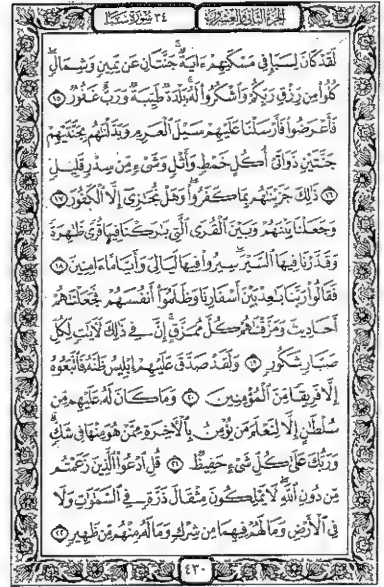 الجزء الثاني والعشرون
٣٤ سورة سبإ
لَقَدْ كَانَ لِسَبَإٍ فِي مَسْكَنِهِمْ ءَايَةٌ جَنَّتَانِ عَن يَمِينٍ وَشِمَالٍ
كُلُوا۟ مِن رِّزْقِ رَبِّكُمْ وَٱشْكُرُوا۟ لَهُۥ بَلْدَةٌ طَيِّبَةٌ وَرَبٌّ غَفُورٌ ١٥
فَأَعْرَضُوا۟ فَأَرْسَلْنَا عَلَيْهِمْ سَيْلَ ٱلْعَرِمِ وَبَدَّلْنَٰهُم بِجَنَّتَيْهِمْ
جَنَّتَيْنِ ذَوَاتَىْ أُكُلٍ خَمْطٍ وَأَثْلٍ وَشَىْءٍ مِّن سِدْرٍ قَلِيلٍ
١٦ ذَٰلِكَ جَزَيْنَٰهُم بِمَا كَفَرُوا۟ وَهَلْ نُجَٰزِىٓ إِلَّا ٱلْكَفُورَ ١٧
وَجَعَلْنَا بَيْنَهُمْ وَبَيْنَ ٱلْقُرَى ٱلَّتِى بَٰرَكْنَا فِيهَا قُرًى ظَٰهِرَةً
وَقَدَّرْنَا فِيهَا ٱلسَّيْرَ سِيرُوا۟ فِيهَا لَيَالِىَ وَأَيَّامًا ءَامِنِينَ ١٨
فَقَالُوا۟ رَبَّنَا بَٰعِدْ بَيْنَ أَسْفَارِنَا وَظَلَمُوٓا۟ أَنفُسَهُمْ فَجَعَلْنَٰهُمْ
أَحَادِيثَ وَمَزَّقْنَٰهُمْ كُلَّ مُمَزَّقٍ إِنَّ فِى ذَٰلِكَ لَءَايَٰتٍ لِّكُلِّ
صَبَّارٍ شَكُورٍ ١٩ وَلَقَدْ صَدَّقَ عَلَيْهِمْ إِبْلِيسُ ظَنَّهُۥ فَٱتَّبَعُوهُ
إِلَّا فَرِيقًا مِّنَ ٱلْمُؤْمِنِينَ ٢٠ وَمَا كَانَ لَهُۥ عَلَيْهِم مِّن
سُلْطَٰنٍ إِلَّا لِنَعْلَمَ مَن يُؤْمِنُ بِٱلْءَاخِرَةِ مِمَّنْ هُوَ مِنْهَا فِى شَكٍّ
وَرَبُّكَ عَلَىٰ كُلِّ شَىْءٍ حَفِيظٌ ٢١ قُلِ ٱدْعُوا۟ ٱلَّذِينَ زَعَمْتُم
مِّن دُونِ ٱللَّهِ لَا يَمْلِكُونَ مِثْقَالَ ذَرَّةٍ فِى ٱلسَّمَٰوَٰتِ وَلَا
فِى ٱلْأَرْضِ وَمَا لَهُمْ فِيهِمَا مِن شِرْكٍ وَمَا لَهُۥ مِنْهُم مِّن ظَهِيرٍ ٢٢
٤٣٠